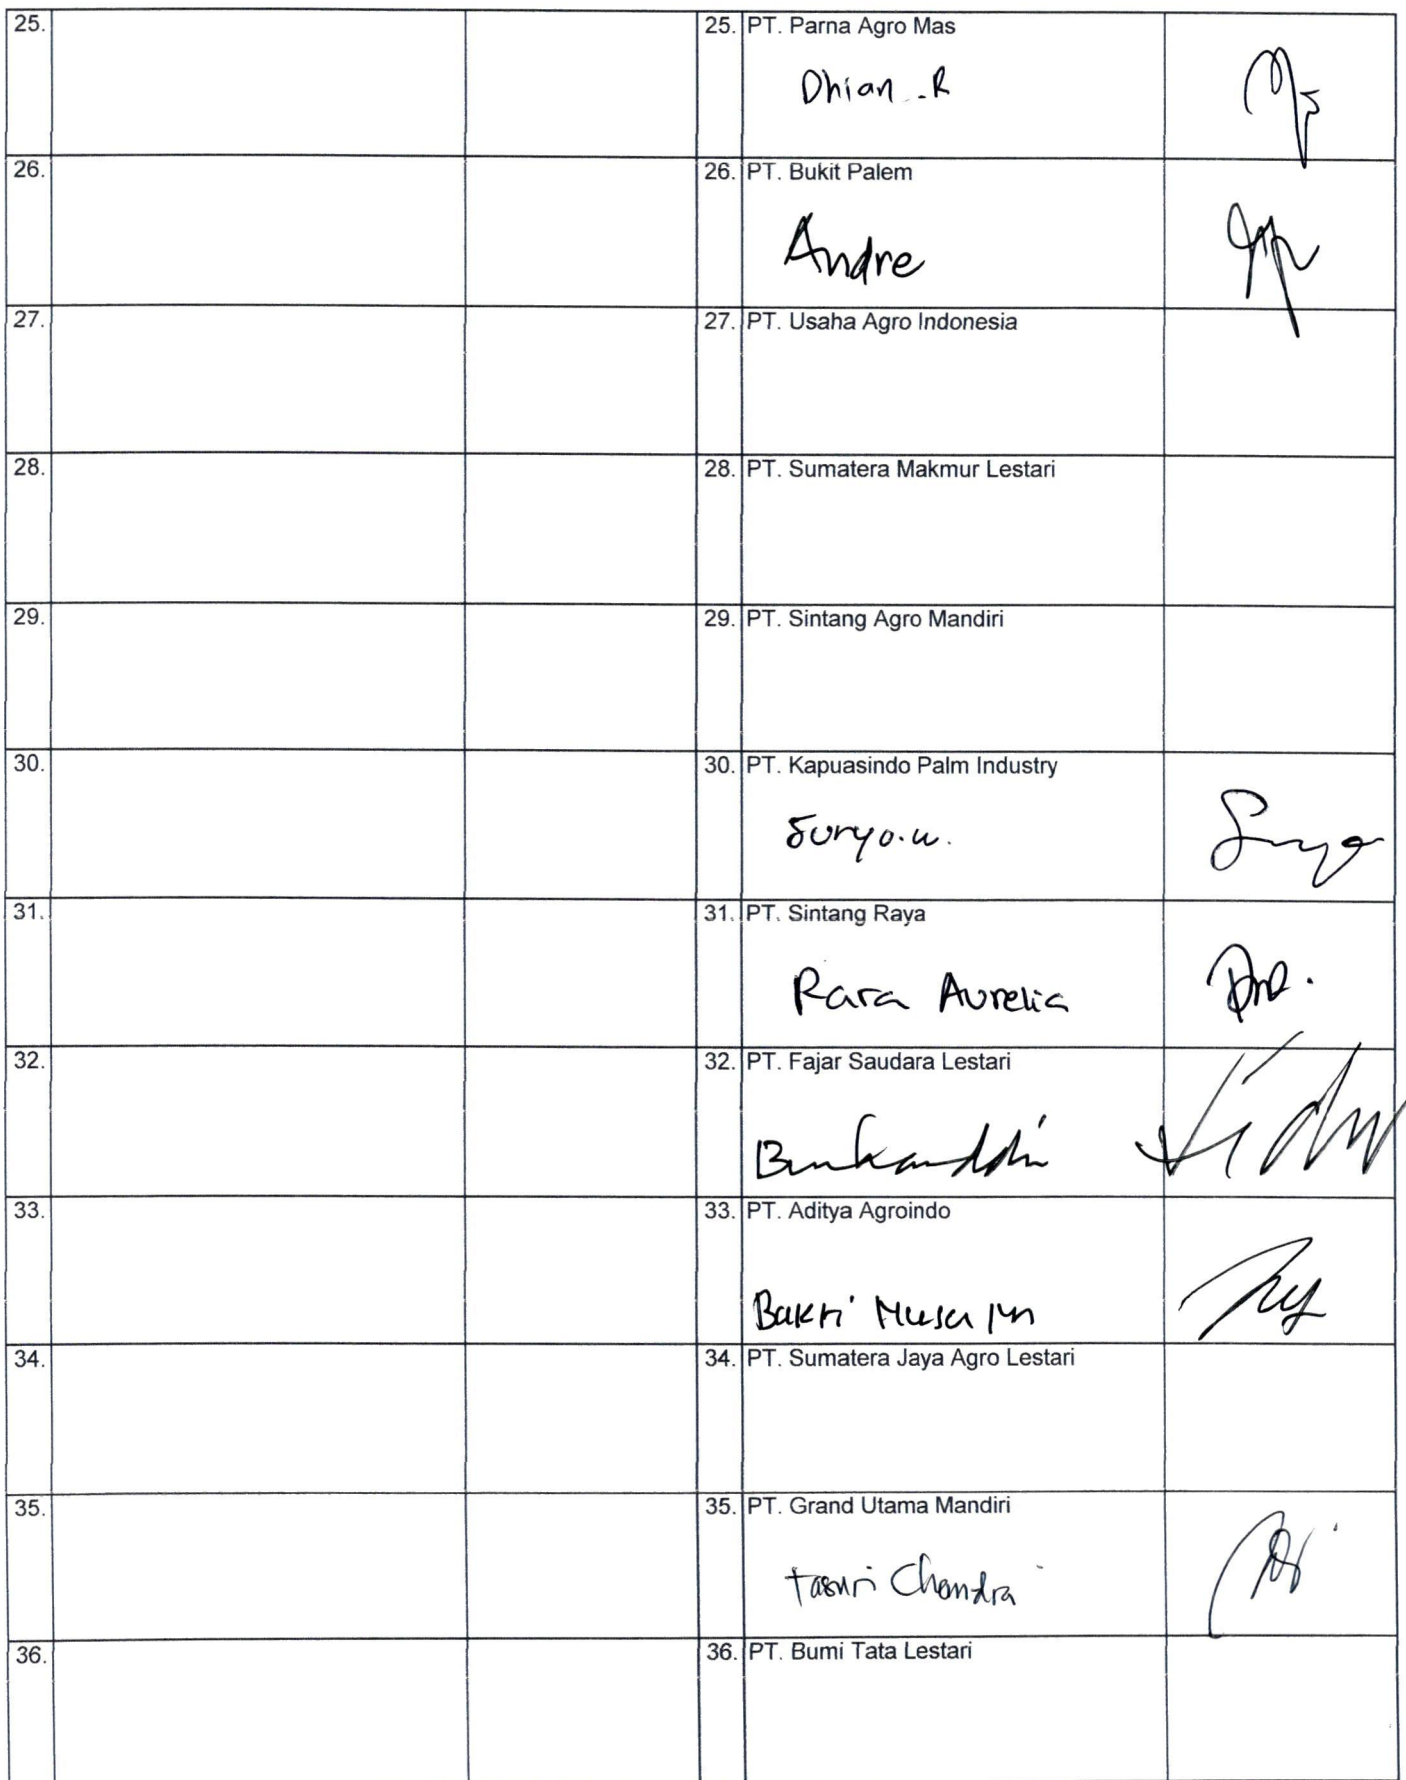 25. 25. PT. Parna Agro Mas
Dhian .R
26. 26. PT. Bukit Palem
Andre
27. 27. PT. Usaha Agro Indonesia
28. 28. PT. Sumatera Makmur Lestari
29. 29. PT. Sintang Agro Mandiri
30. 30. PT. Kapuasindo Palm Industry
Suryo.w.
31. 31. PT. Sintang Raya
Rara Aurelia
32. 32. PT. Fajar Saudara Lestari
33. 33. PT. Aditya Agroindo
Bakri
34. 34. PT. Sumatera Jaya Agro Lestari
35. 35. PT. Grand Utama Mandiri
Chandra
36. 36. PT. Bumi Tata Lestari